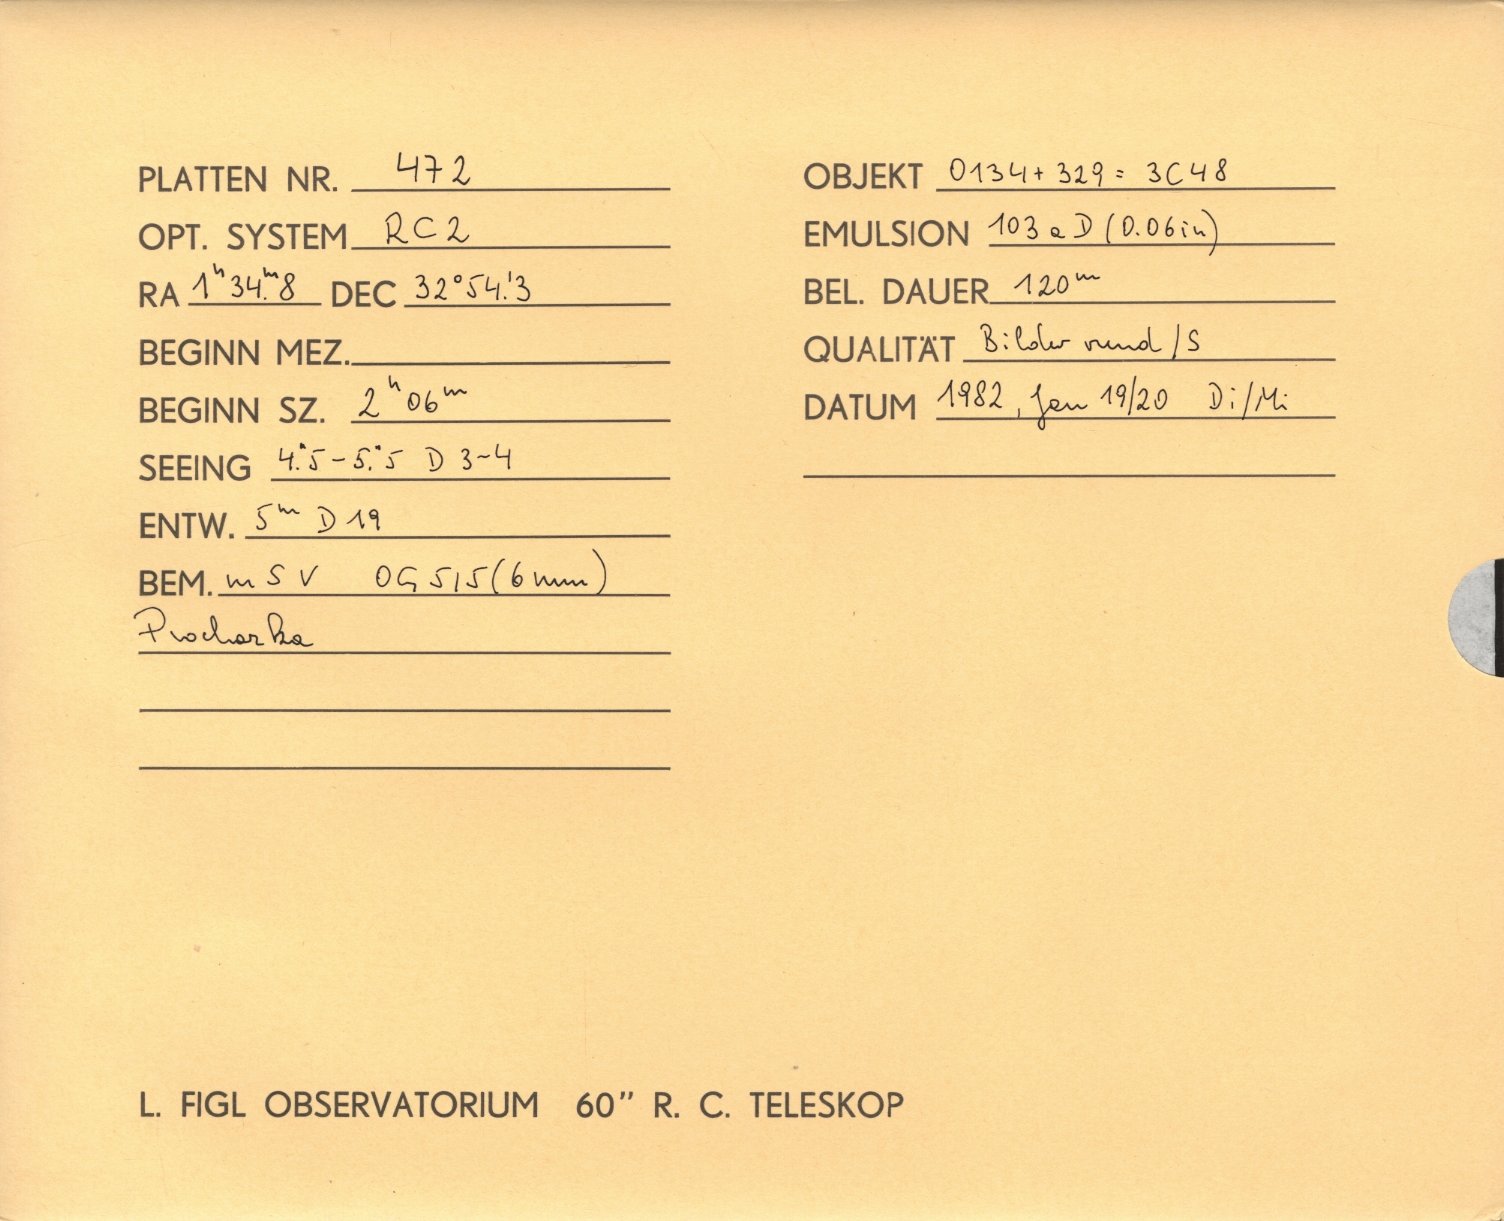 PLATTEN NR. 472
OPT. SYSTEM RC2
RA 1ʰ34ᵐ.8 DEC 32°54.'3
BEGINN MEZ.
BEGINN SZ. 2ʰ06ᵐ
SEEING 4."5-5."5 D 3-4
ENTW. 5ᵐ D19
BEM. m S V OG515(6mm)
Prochazka
OBJEKT 0134+329 = 3C48
EMULSION 103aD (0.06in)
BEL. DAUER 120ᵐ
QUALITÄT Bilder rund/S
DATUM 1982, Jan 19/20 Di/Mi
L. FIGL OBSERVATORIUM 60" R. C. TELESKOP